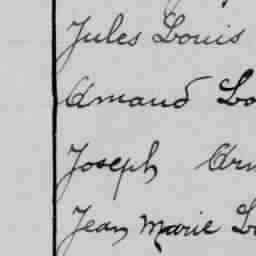 Jules Louis
Amand Lo
Joseph Arm
Jean Marie Lo